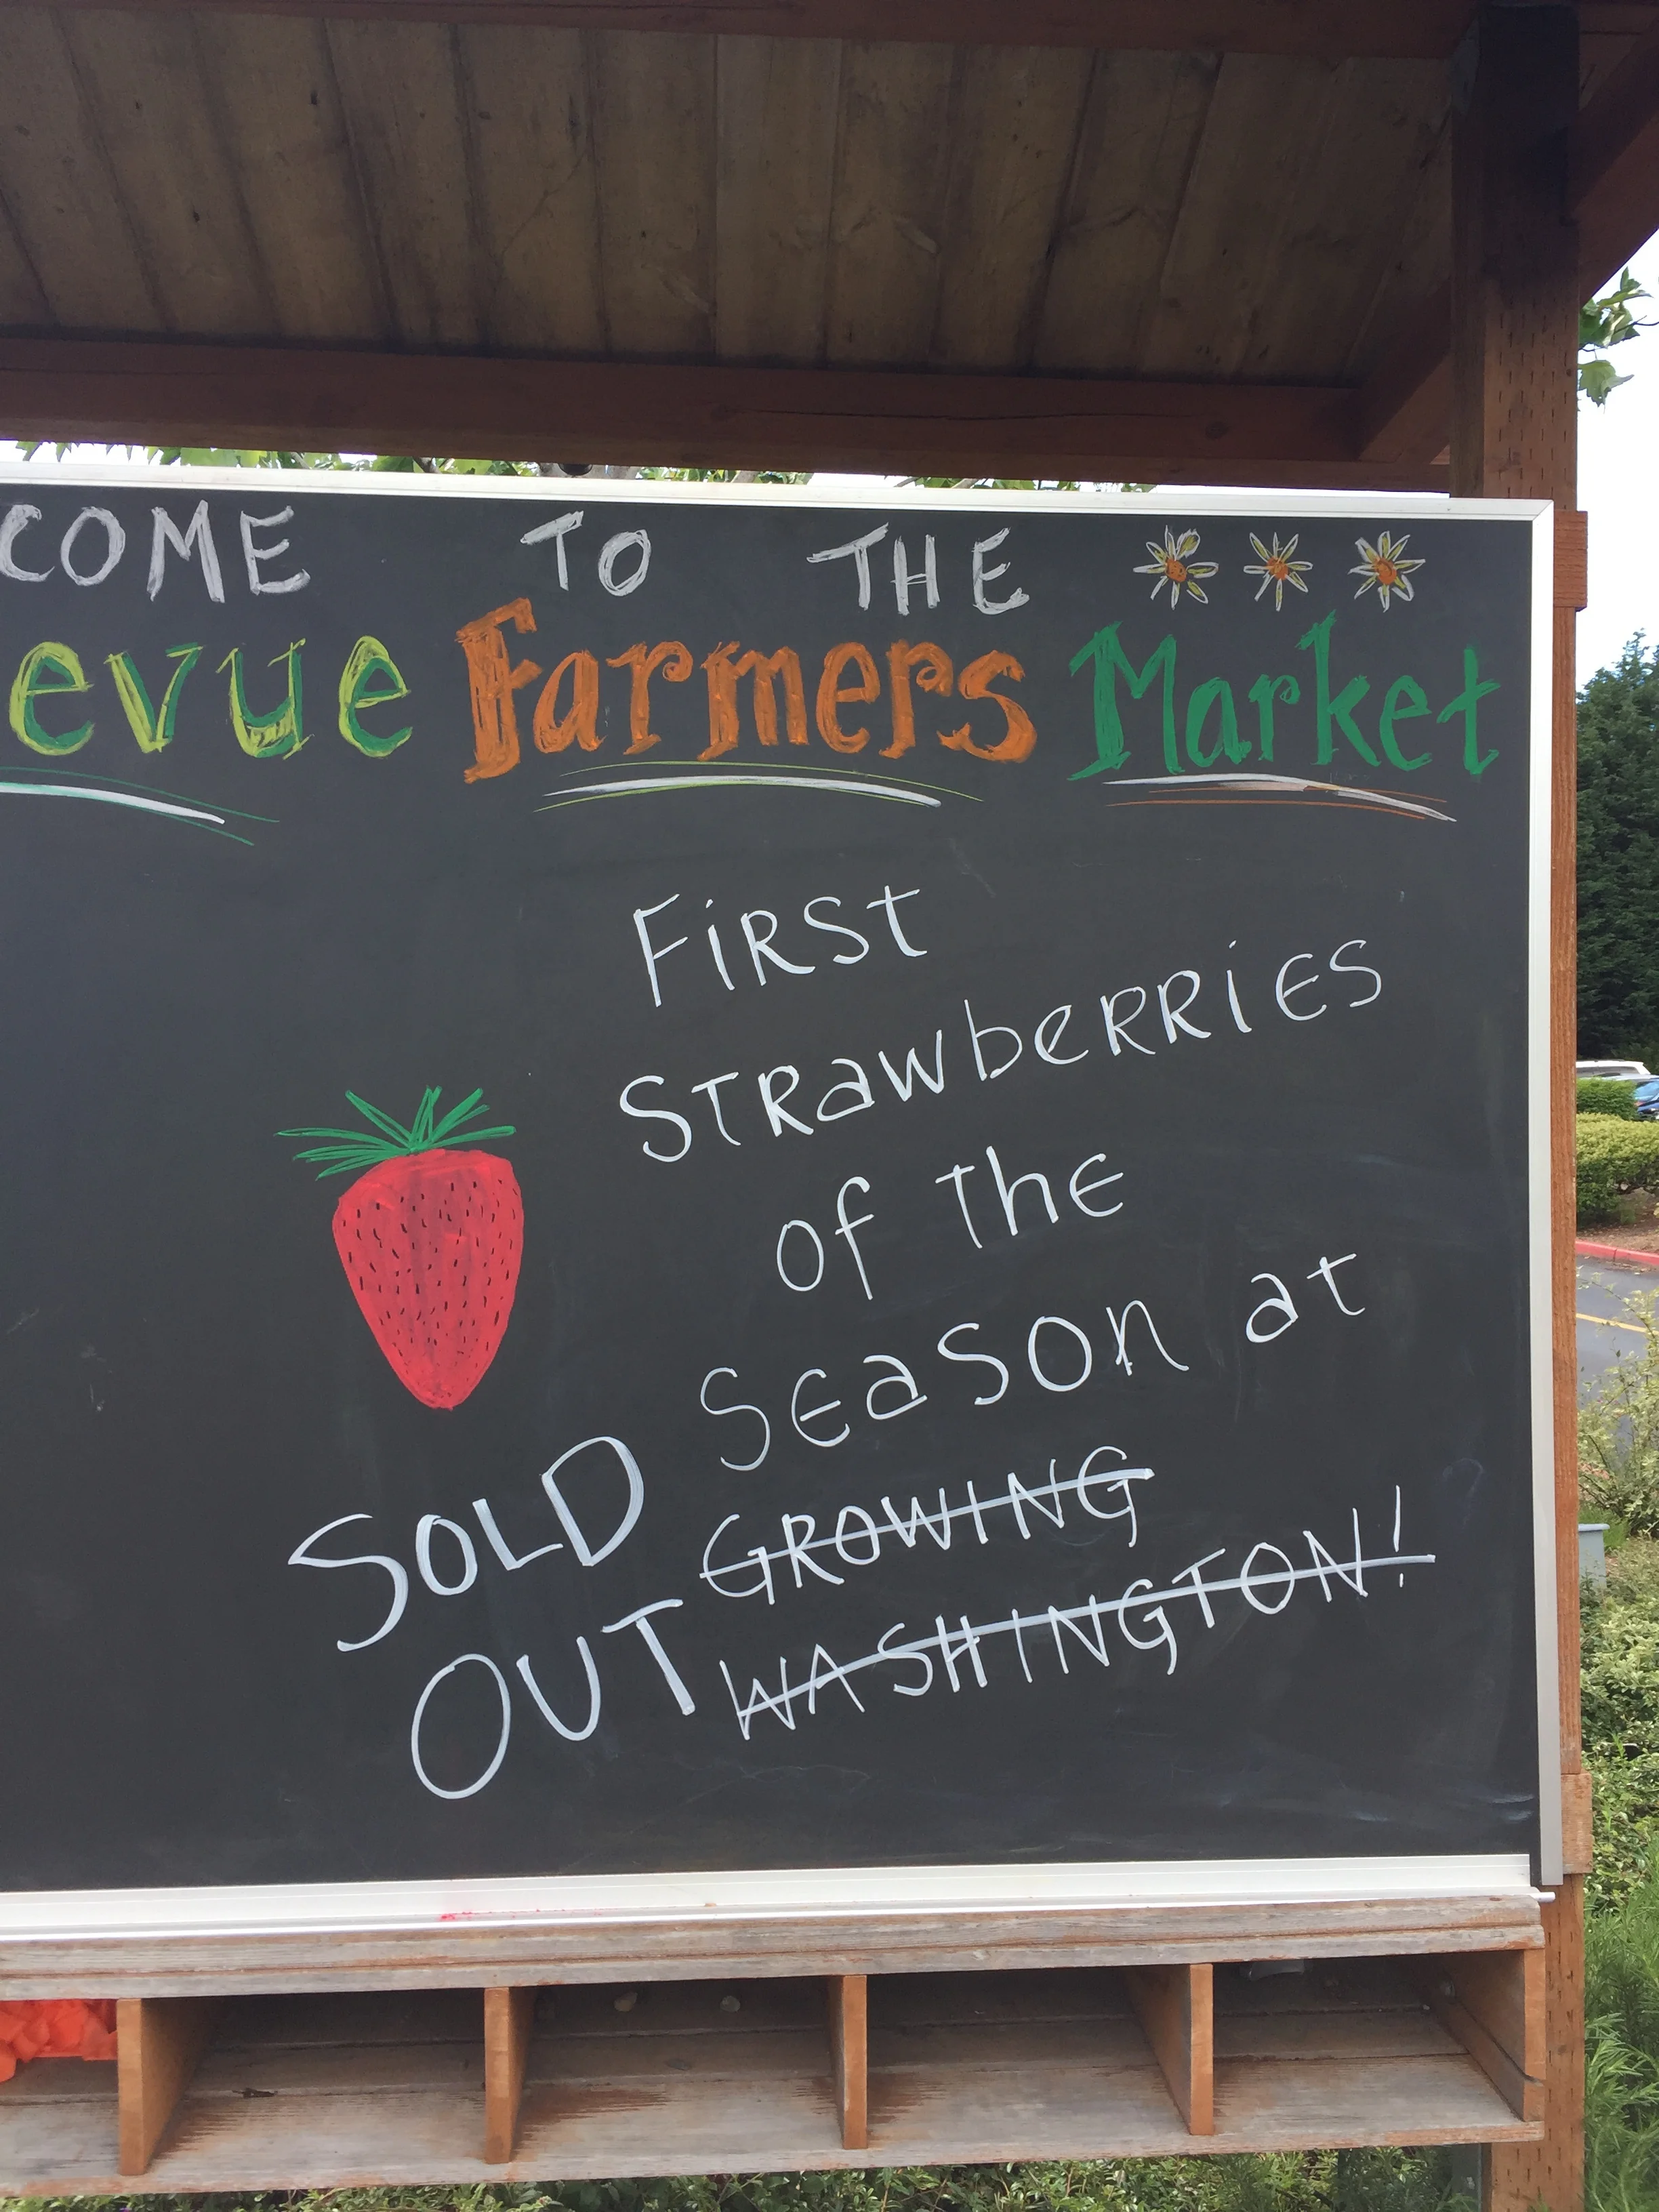 COME TO THE
evue Farmers Market
FiRSt
STRawbeRRiES
of the
SEaSOn at
SOLD GROWING
OUT WASHINGTON!